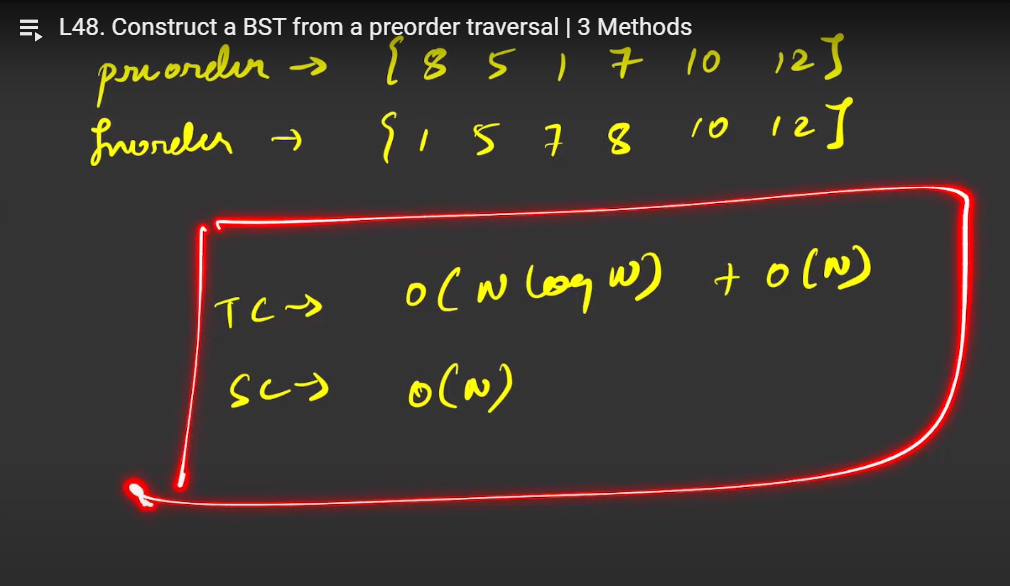 L48. Construct a BST from a preorder traversal | 3 Methods
preorder → { 8 5 1 7 10 12 }
Inorder → { 1 5 7 8 10 12 }
TC → O(N log N) + O(N)
SC → O(N)